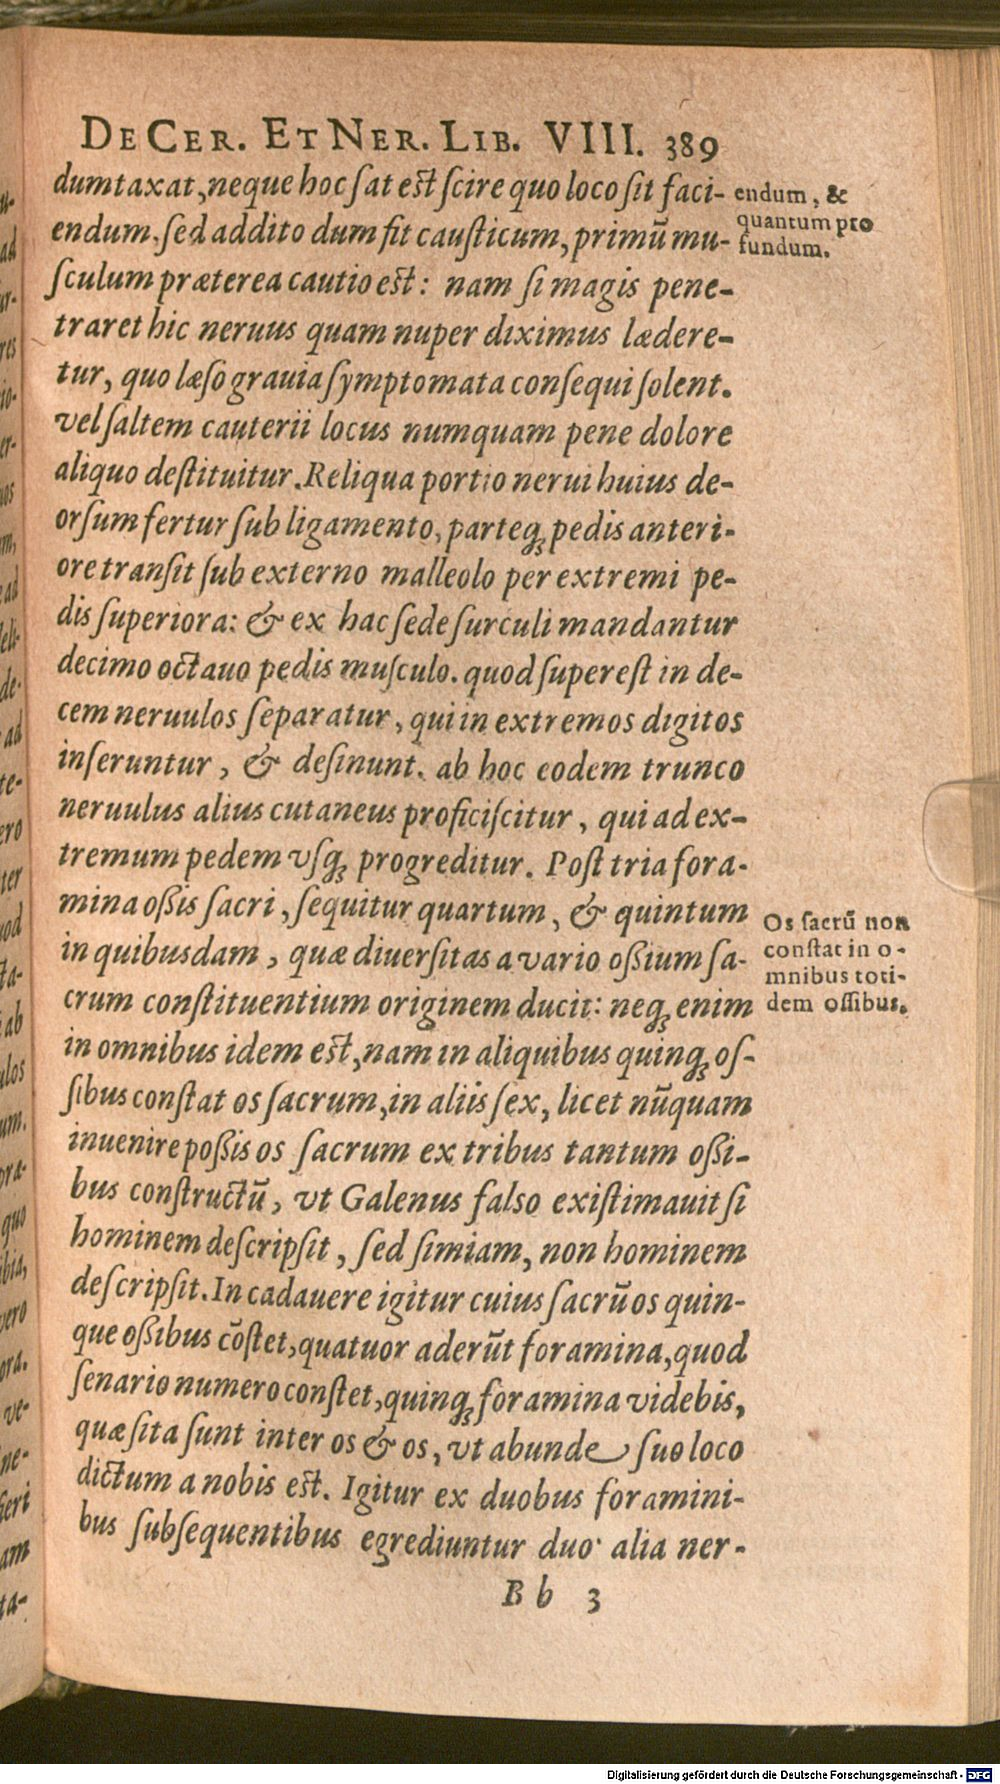 DE CER. ET NER. LIB. VIII. 389
dumtaxat, neque hoc ſat eſt ſcire quo loco ſit faci-
endum, ſed addito dum fit cauſticum, primū mu-
ſculum præterea cautio eſt: nam ſi magis pene-
traret hic neruus quam nuper diximus lædere-
tur, quo læſo grauia ſymptomata conſequi ſolent.
vel ſaltem cauterii locus numquam pene dolore
aliquo deſtituitur. Reliqua portio nerui huius de-
orſum fertur ſub ligamento, parteq́; pedis anteri-
ore tranſit ſub externo malleolo per extremi pe-
dis ſuperiora: & ex hac ſede ſurculi mandantur
decimo octauo pedis muſculo. quod ſupereſt in de-
cem neruulos ſeparatur, qui in extremos digitos
inſeruntur, & deſinunt. ab hoc eodem trunco
neruulus alius cutaneus proficiſcitur, qui ad ex-
tremum pedem vſq; progreditur. Poſt tria fora-
mina oſſis ſacri, ſequitur quartum, & quintum
in quibusdam, quæ diuerſitas a vario oſſium ſa-
crum conſtituentium originem ducit: neq; enim
in omnibus idem eſt, nam in aliquibus quinq; oſ-
ſibus conſtat os ſacrum, in aliis ſex, licet nūquam
inuenire poſſis os ſacrum ex tribus tantum oſſi-
bus conſtructū, vt Galenus falſo exiſtimauit ſi
hominem deſcripſit, ſed ſimiam, non hominem
deſcripſit. In cadauere igitur cuius ſacrū os quin-
que oſſibus cōſtet, quatuor aderūt foramina, quod
ſenario numero conſtet, quinq; foramina videbis,
quæ ſita ſunt inter os & os, vt abunde ſuo loco
dictum a nobis eſt. Igitur ex duobus foramini-
bus ſubſequentibus egrediuntur duo alia ner-
B b 3
endum, &
quantum pro
fundum.
Os ſacrū non
conſtat in o-
mnibus toti-
dem oſſibus.
Digitalisierung gefördert durch die Deutsche Forschungsgemeinschaft - DFG